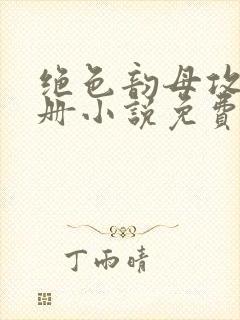 绝色韵母攻
册小说免费
丁雨晴